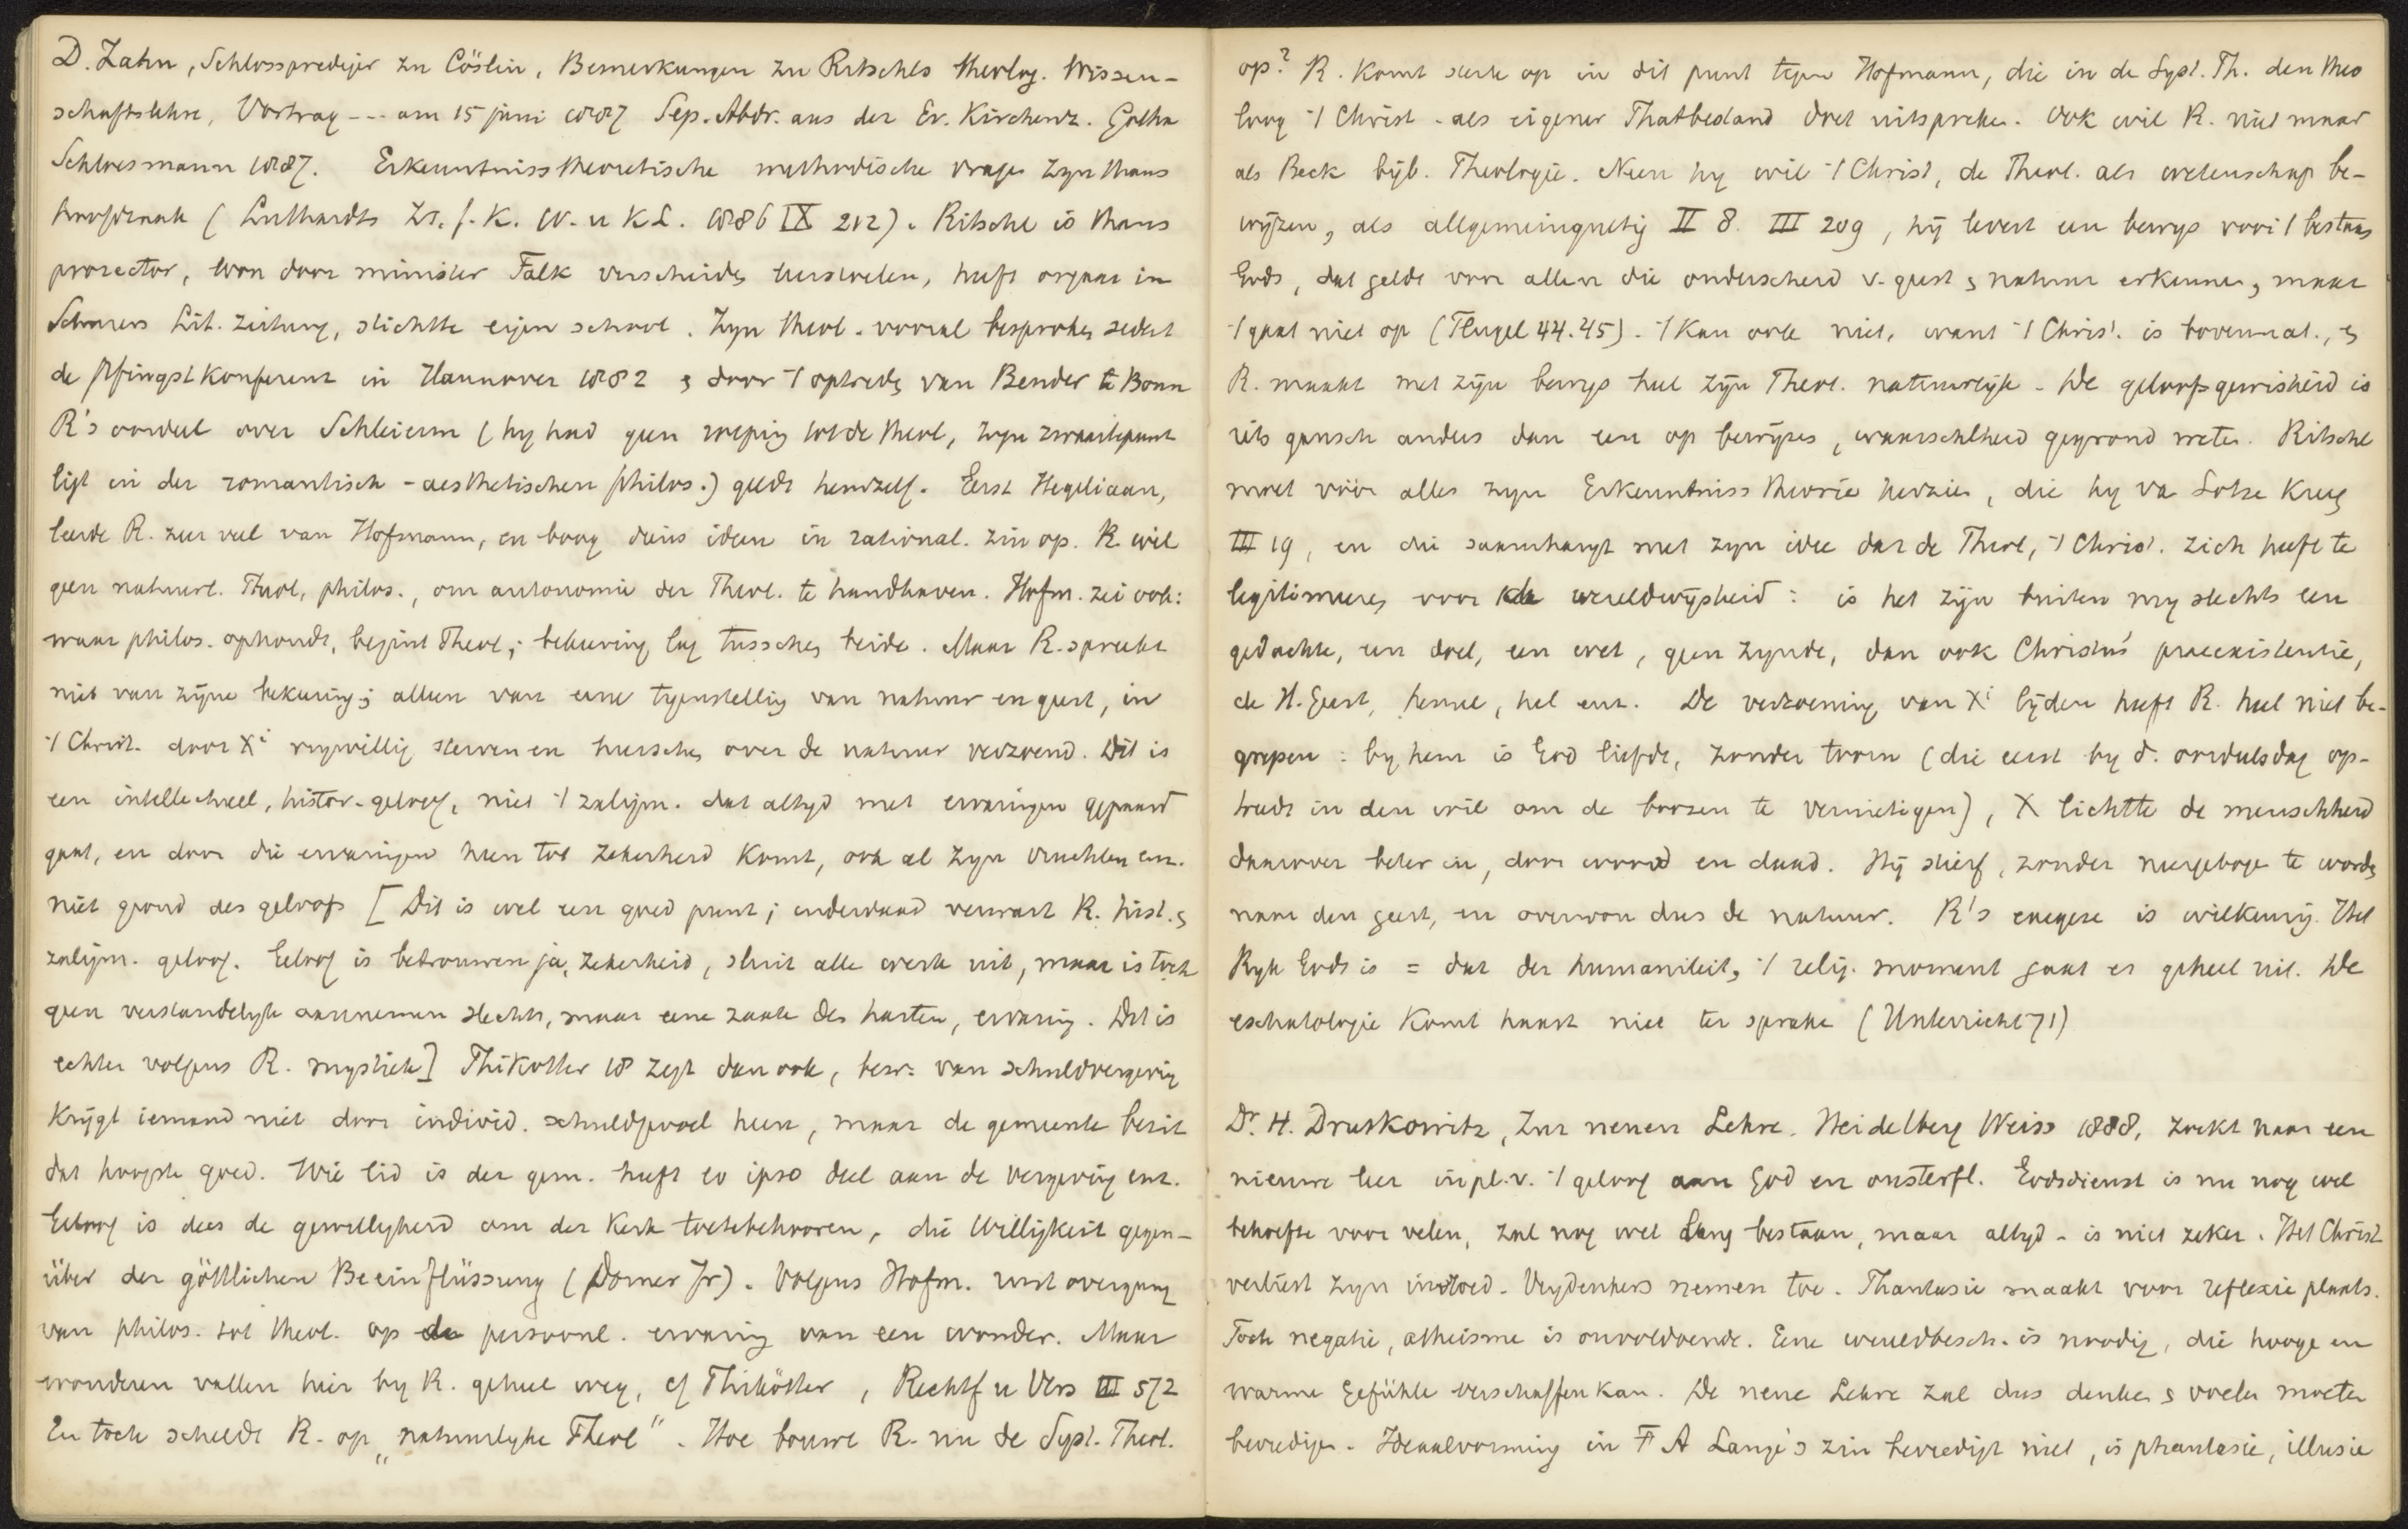 D. Zahn, Schlossprediger zu Cöslin, Bemerkungen zu Ritschls theolog. Wissen-
schaftslehre, Vortrag --- am 15 juni 1887 Sep. Abdr. aus der Ev. Kirchenz. Gotha
Schloesmann 1887. Erkenntnisstheoretische methodische vragen zyn thans
hoofdzaak (Luthardts Zs. f. K. W. u K L. 1886 IX 212). Ritschl is thans
prorector, won door minister Falk verscheidē leerstoelen, heeft orgaan in
Schürers Lit. Zeitung, stichtte eigen school. Zyn theol. vooral besproken sedert
de Pfingstkonferenz in Hannover 1882 en door 't optredē van Bender te Bonn
R's oordeel over Schleierm (hy had geen roeping tot de theol, zyn zwaartepunt
ligt in der romantisch-aesthetischen philos.) geldt hemzelf. Eerst Hegeliaan,
leerde R. zeer veel van Hofmann, en boog diens ideen in rational. zin op. R. wil
geen natuurl. Theol, philos., om autonomie der Theol. te handhaven. Hofm. zei ook:
waar philos. ophoudt, begint Theol; bekeering lag tusschen beide. Maar R. spreekt
niet van zyne bekeering; alleen van eene tegenstelling van natuur en geest, in
't Christ. door Xi vrywillig sterven en heerschen over de natuur verzoend. Dit is
een intellectueel, histor. geloof, niet 't zaligm. dat altyd met ervaringen gepaard
gaat, en door die ervaringen heen tot zekerheid komt, ook al zyn vruchten enz.
niet grond des geloofs [Dit is wel een goed punt; inderdaad verwart R. hist. en
zaligm. geloof. Geloof is betrouwen ja, zekerheid, sluit alle werk uit, maar is toch
geen verstandelyk aannemen slechts, maar eene zaak des harten, ervaring. Dit is
echter volgens R. mystiek] Thikötter 18 zegt dan ook, bew: van schuldvergeving
krygt iemand niet door individ. schuldgevoel heen, maar de gemeente bezit
dat hoogste goed. Wie lid is der gem. heeft eo ipso deel aan de vergeving enz.
Geloof is dus de gewilligheid om der Kerk toetebehooren, die Willigkeit gegen-
über der göttlichen Beeinflüssung (Dorner Jr). Volgens Hofm. rust overgang
van philos. tot theol. op de persoonl. ervaring van een wonder. Maar
wonderen vallen hier by R. geheel weg, cf Thikötter, Rechtf u Vers III 572
En toch scheldt R. op „natuurlyke Theol". Hoe bouwt R. nu de Syst. Theol.
op? R. komt sterk op in dit punt tegen Hofmann, die in de Syst. Th. den theo
loog 't Christ. als eigener Thatbestand doet uitspreken. Ook wil R. niet maar
als Beck bijb. Theologie. Neen hy wil 't Christ, de Theol. als wetenschap be-
wijzen, als allgemeingueltig II 8. III 209, hij levert een bewys voor 't bestaan
Gods, dat geldt voor allen die onderscheid v. geest en natuur erkennen, maar
't gaat niet op (Flugel 44.45). 't Kan ook niet, want 't Christ. is bovennat., en
R. maakt met zijn bewys heel zijn Theol. natuurlijk. De geloofsgewisheid is
iets gansch anders dan een op bewijzen, waarschlheid gegrond weten. Ritschl
moet vóór alles zyn Erkenntnisstheorie herzien, die hy va Lotze kreeg
III 19, en die saamhangt met zyn idee dat de Theol, 't Christ. zich heeft te
legitimeeren voor de wereldwijsheid: is het zijn buiten my slechts een
gedachte, een doel, een wet, geen zynde, dan ook Christus' praeexistentie,
de H. Geest, hemel, hel enz. De verzoening van Xi lijden heeft R. heel niet be-
grepen: by hem is God liefde, zonder toorn (die eerst by d. oordeelsdag op-
treedt in den wil om de boozen te vernietigen), X lichtte de menschheid
daarover beter in, door woord en daad. Hij stierf, zonder neergebogen te worden
naar den geest, en overwon dus de natuur. R's exegese is willekeurig. Het
Ryk Gods is = dat der humaniteit, 't relig. moment gaat er geheel uit. De
eschatologie komt haast niet ter sprake (Unterricht 71)
Dr. H. Druskowitz, Zur neuen Lehre. Heidelberg Weiss 1888, zoekt naar een
nieuwe leer in pl. v. 't geloof aan God en onsterfl. Godsdienst is nu nog wel
behoefte voor velen, zal nog wel lang bestaan, maar altyd - is niet zeker. Het Christ
verliest zyn invloed. Vrydenkers nemen toe. Phantasie maakt voor reflexie plaats.
Toch negatie, atheisme is onvoldoende. Eene wereldbesch. is noodig, die hooge en
warme Gefühle verschaffen kan. De neue Lehre zal dus denken en voelen moeten
bevredigen. Ideaalvorming in F A Lange's zin bevredigt niet, is phantasie, illusie